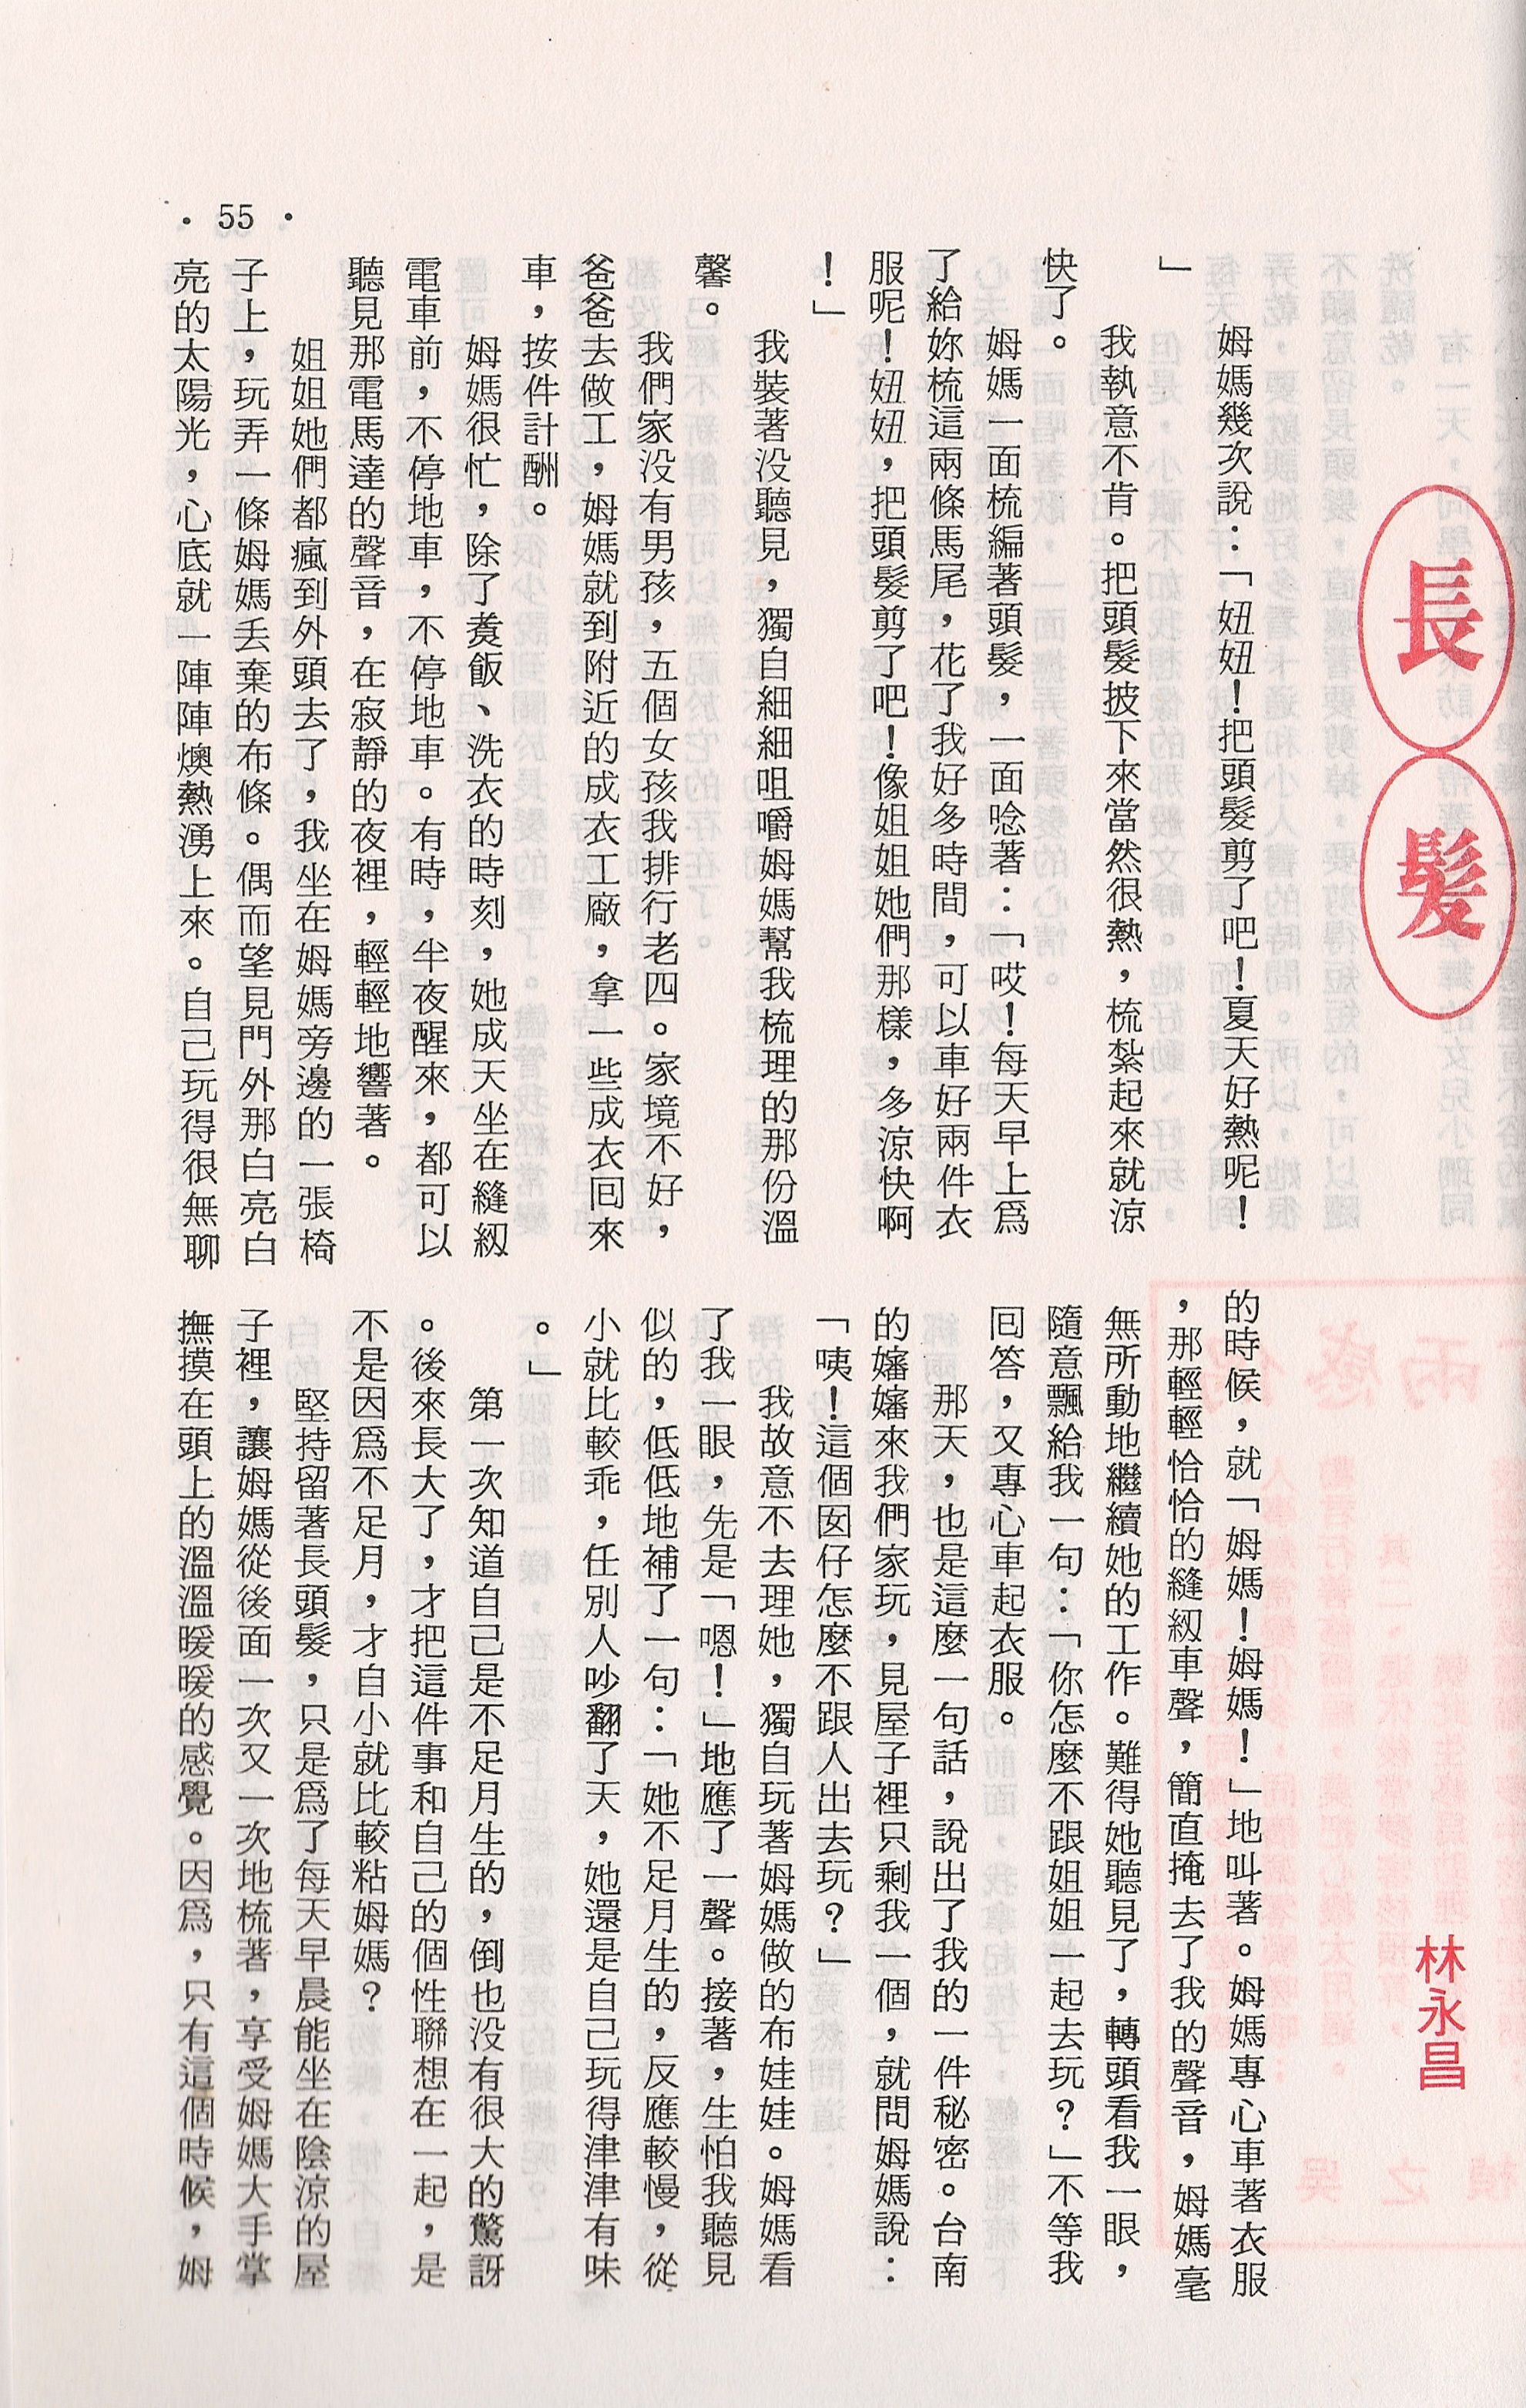 長髮
林永昌
姆媽幾次說：「妞妞！把頭髮剪了吧！夏天好熱呢！
」
我執意不肯。把頭髮披下來當然很熱，梳紮起來就涼
快了。
姆媽一面梳編著頭髮，一面唸著：「哎！每天早上爲
了給妳梳這兩條馬尾，花了我好多時間，可以車好兩件衣
服呢！妞妞，把頭髮剪了吧！像姐姐她們那樣，多涼快啊
！」
我裝著没聽見，獨自細細咀嚼姆媽幫我梳理的那份溫
馨。
我們家没有男孩，五個女孩我排行老四。家境不好，
爸爸去做工，姆媽就到附近的成衣工廠，拿一些成衣回來
車，按件計酬。
姆媽很忙，除了煑飯、洗衣的時刻，她成天坐在縫紉
電車前，不停地車，不停地車。有時，半夜醒來，都可以
聽見那電馬達的聲音，在寂靜的夜裡，輕輕地響著。
姐姐她們都瘋到外頭去了，我坐在姆媽旁邊的一張椅
子上，玩弄一條姆媽丢棄的布條。偶而望見門外那白亮白
亮的太陽光，心底就一陣陣燠熱湧上來。自己玩得很無聊
的時候，就「姆媽！姆媽！」地叫著。姆媽專心車著衣服
，那輕輕恰恰的縫紉車聲，簡直掩去了我的聲音，姆媽毫
無所動地繼續她的工作。難得她聽見了，轉頭看我一眼，
隨意飄給我一句：「你怎麼不跟姐姐一起去玩？」不等我
回答，又專心車起衣服。
那天，也是這麼一句話，說出了我的一件秘密。台南
的嬸嬸來我們家玩，見屋子裡只剩我一個，就問姆媽說：
「咦！這個囡仔怎麼不跟人出去玩？」
我故意不去理她，獨自玩著姆媽做的布娃娃。姆媽看
了我一眼，先是「嗯！」地應了一聲。接著，生怕我聽見
似的，低低地補了一句：「她不足月生的，反應較慢，從
小就比較乖，任別人吵翻了天，她還是自己玩得津津有味
。」
第一次知道自己是不足月生的，倒也没有很大的驚訝
。後來長大了，才把這件事和自己的個性聯想在一起，是
不是因爲不足月，才自小就比較粘姆媽？
堅持留著長頭髮，只是爲了每天早晨能坐在陰涼的屋
子裡，讓姆媽從後面一次又一次地梳著，享受姆媽大手掌
撫摸在頭上的溫溫暖暖的感覺。因爲，只有這個時候，姆
·55·